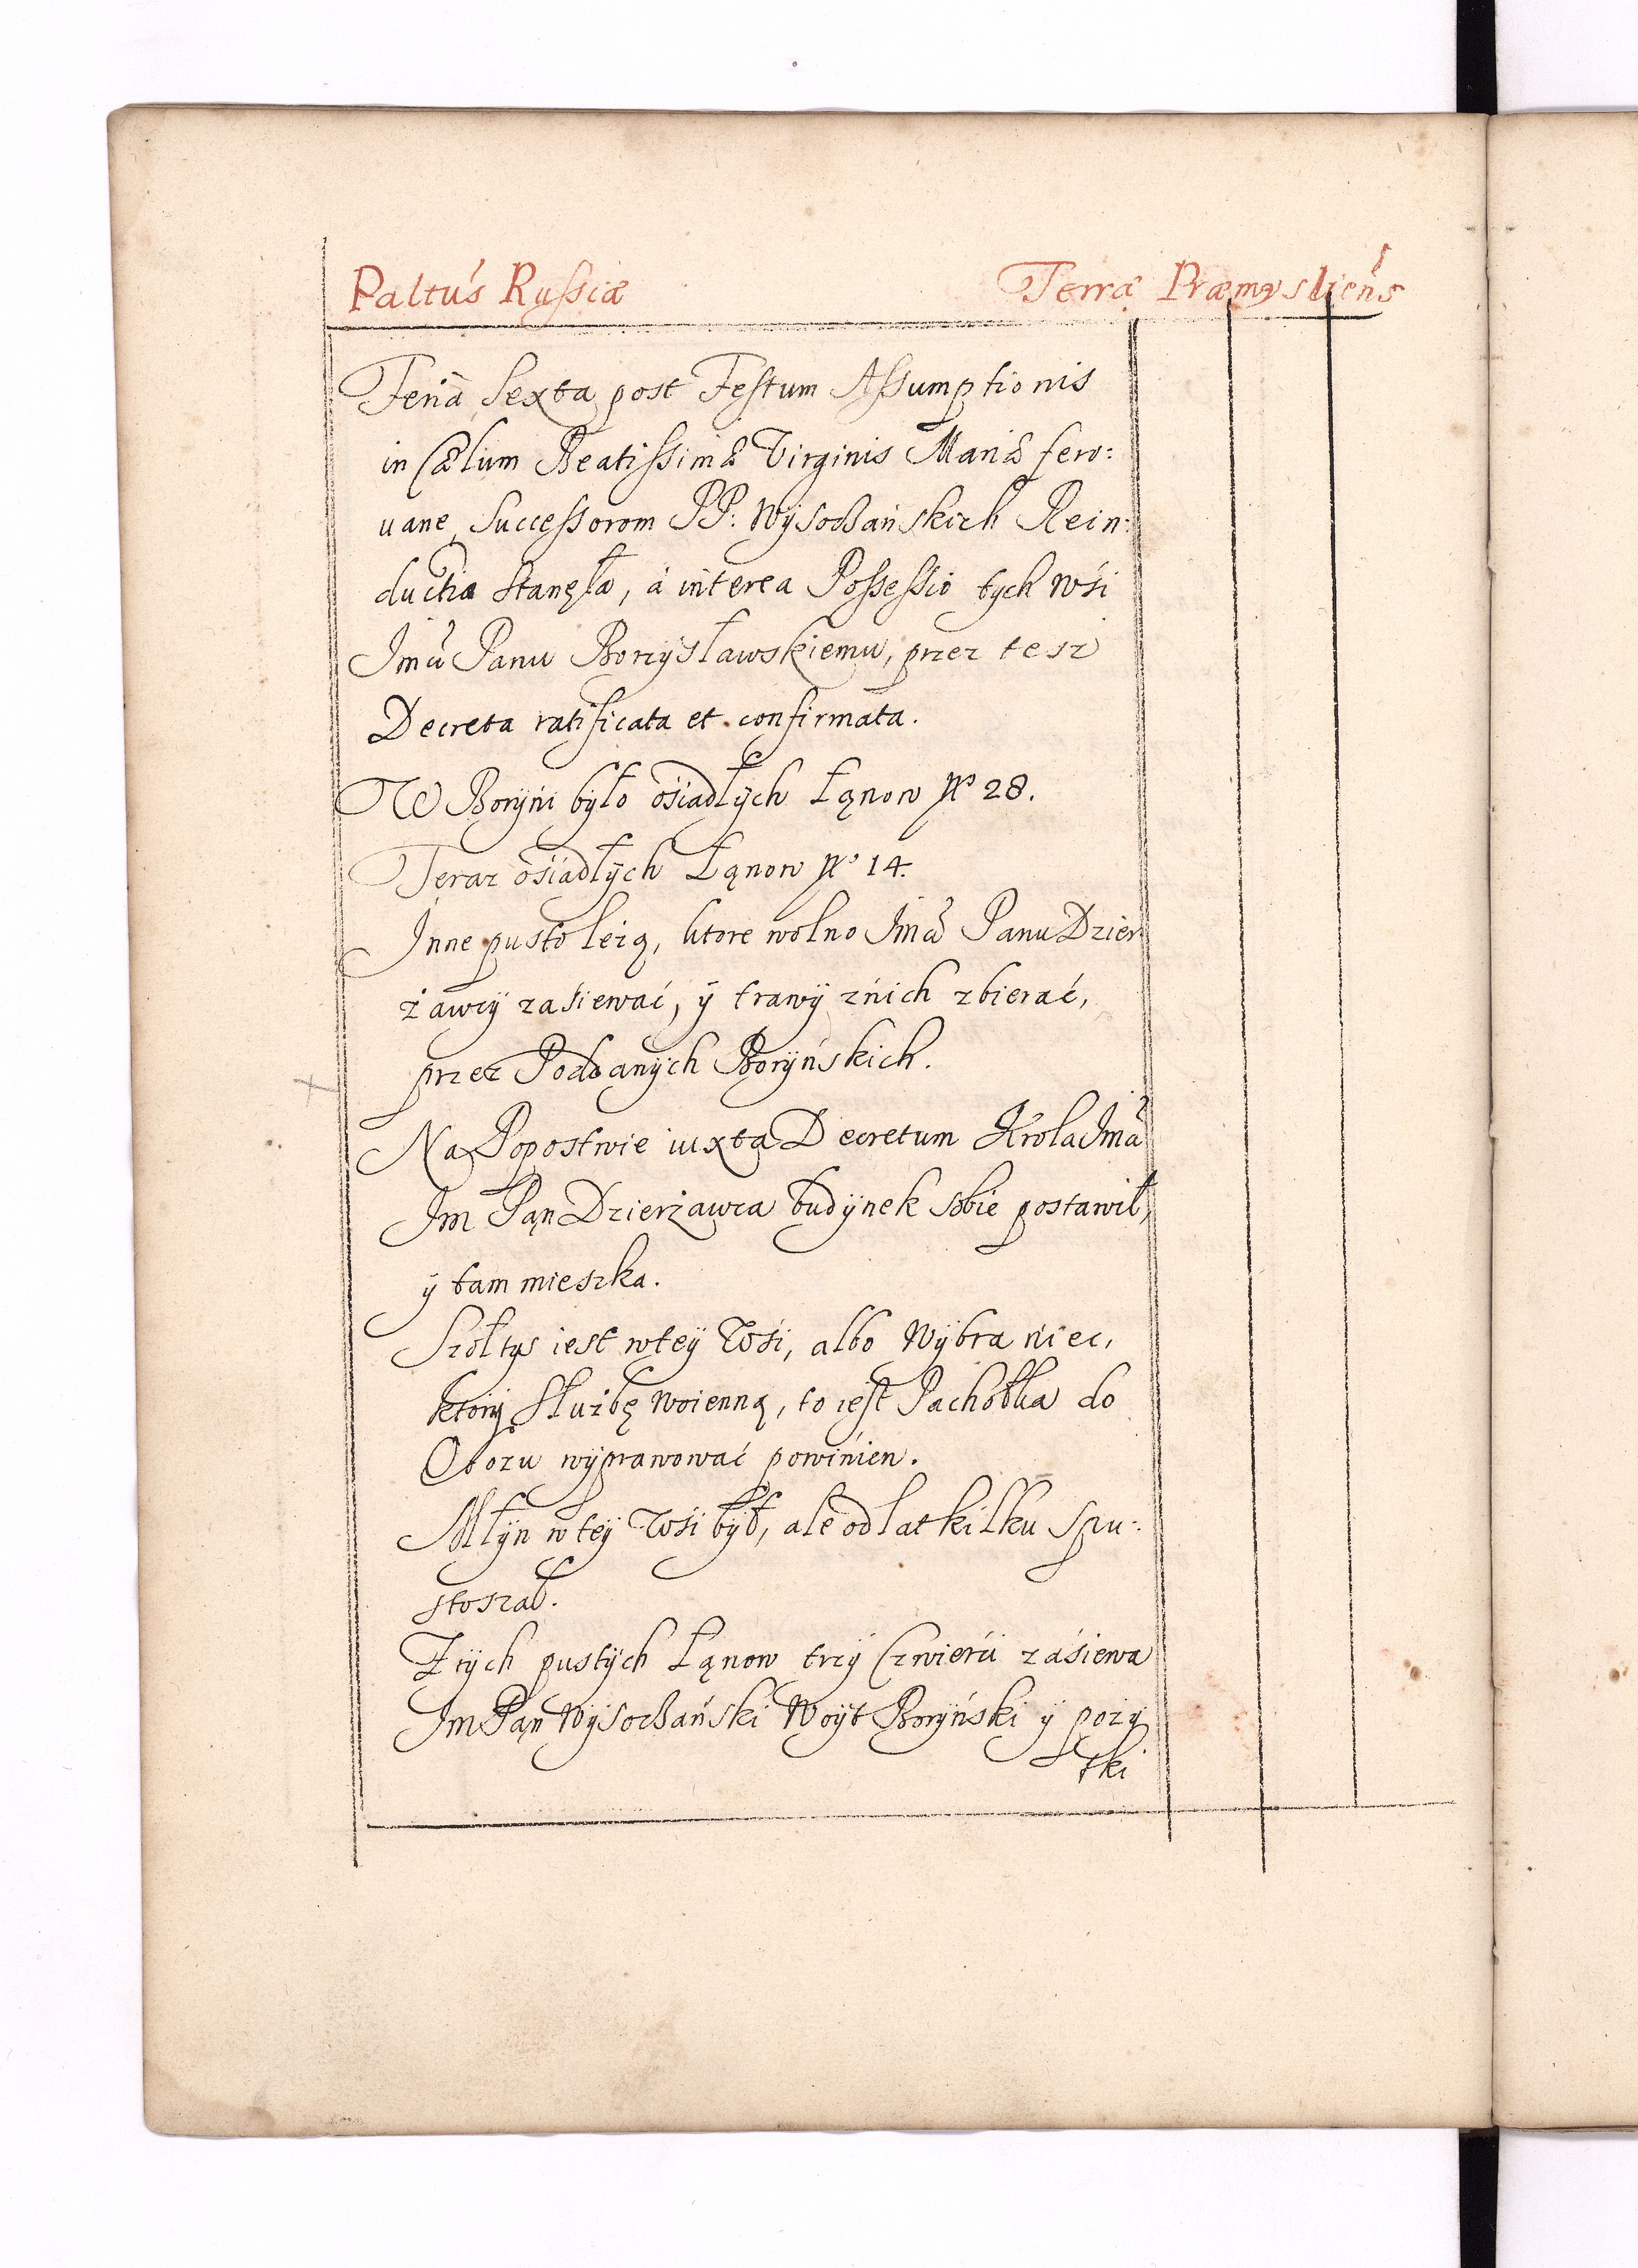 Paltu's Russiæ Terræ Præmysliens
Feria Sexta post Festum Assumptionis
in Cælum Beatissimæ Virginis Mariæ fero:
uane, Successorom PP: Wÿsoczańskich Rein:
ductia stanęła, á interea Possessio tych wśi
Imci Panu Borzysławskiemu, przez tesz
Decreta ratificata et confirmata.
W Borÿni bÿło ośiadłÿch Łąnow No 28.
Teraz ośiadłÿch Łąnow No 14.
Jnne pusto leżą, ktore wolno Jmci Panu Dzier
żawcÿ zasiewać, ÿ trawÿ z nich zbierać,
przez Poddanÿch Borÿńskich.
Na Popostwie iuxta Decretum Krola Jmci
Jm Pąn Dzierżawca budÿnek sobie postawił,
ÿ tam mieszka.
Szołtys iest wteÿ Wśi, albo Wÿbraniec,
ktorÿ Służbę woienną, to iest Pachołka do
Obozu wÿprawować powinien.
Młÿn w teÿ Wśi bÿł, ale od lat kilku spu:
stoszał.
Z tÿch pustÿch Łąnow trzÿ Czwierci zásiewa
Jm Pąn Wÿsoczański Woÿt Borÿński ÿ poży
tki